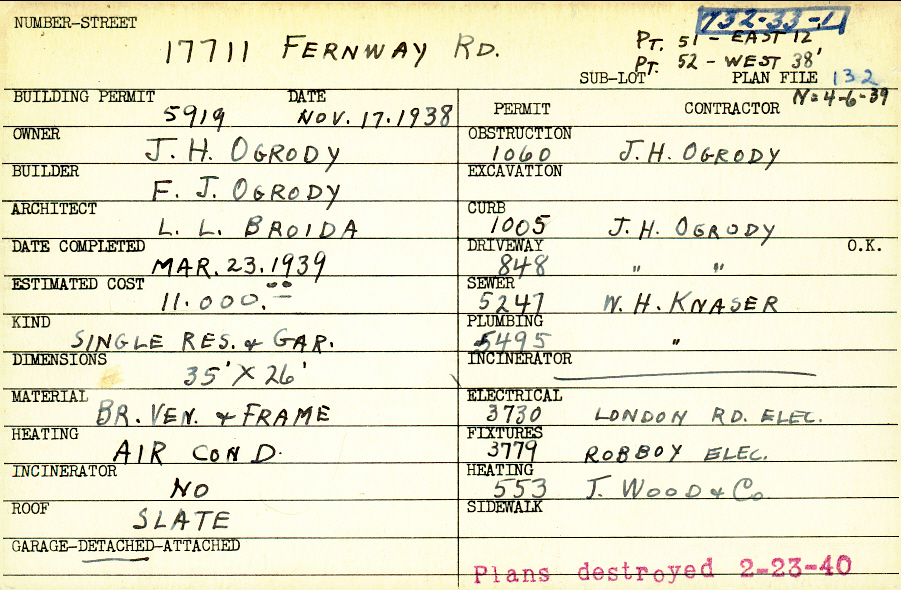 NUMBER-STREET
732-33-1
17711 FERNWAY RD.
PT. 51 - EAST 12'
PT. 52 - WEST 38'
SUB-LOT PLAN FILE 132
N=4-6-39
BUILDING PERMIT DATE
5919 NOV. 17. 1938
OWNER
J. H. OGRODY
BUILDER
F. J. OGRODY
ARCHITECT
L. L. BROIDA
DATE COMPLETED
MAR. 23. 1939
ESTIMATED COST
11.000.00
KIND
SINGLE RES. & GAR.
DIMENSIONS
35' X 26'
MATERIAL
BR. VEN. & FRAME
HEATING
AIR COND.
INCINERATOR
NO
ROOF
SLATE
GARAGE-DETACHED-ATTACHED
PERMIT CONTRACTOR
OBSTRUCTION
1060 J. H. OGRODY
EXCAVATION
CURB
1005 J. H. OGRODY
DRIVEWAY O.K.
848 " "
SEWER
5247 W. H. KNASER
PLUMBING
5495 "
INCINERATOR
ELECTRICAL
3730 LONDON RD. ELEC.
FIXTURES
3779 ROBBOY ELEC.
HEATING
553 J. WOOD & CO.
SIDEWALK
Plans destroyed 2-23-40